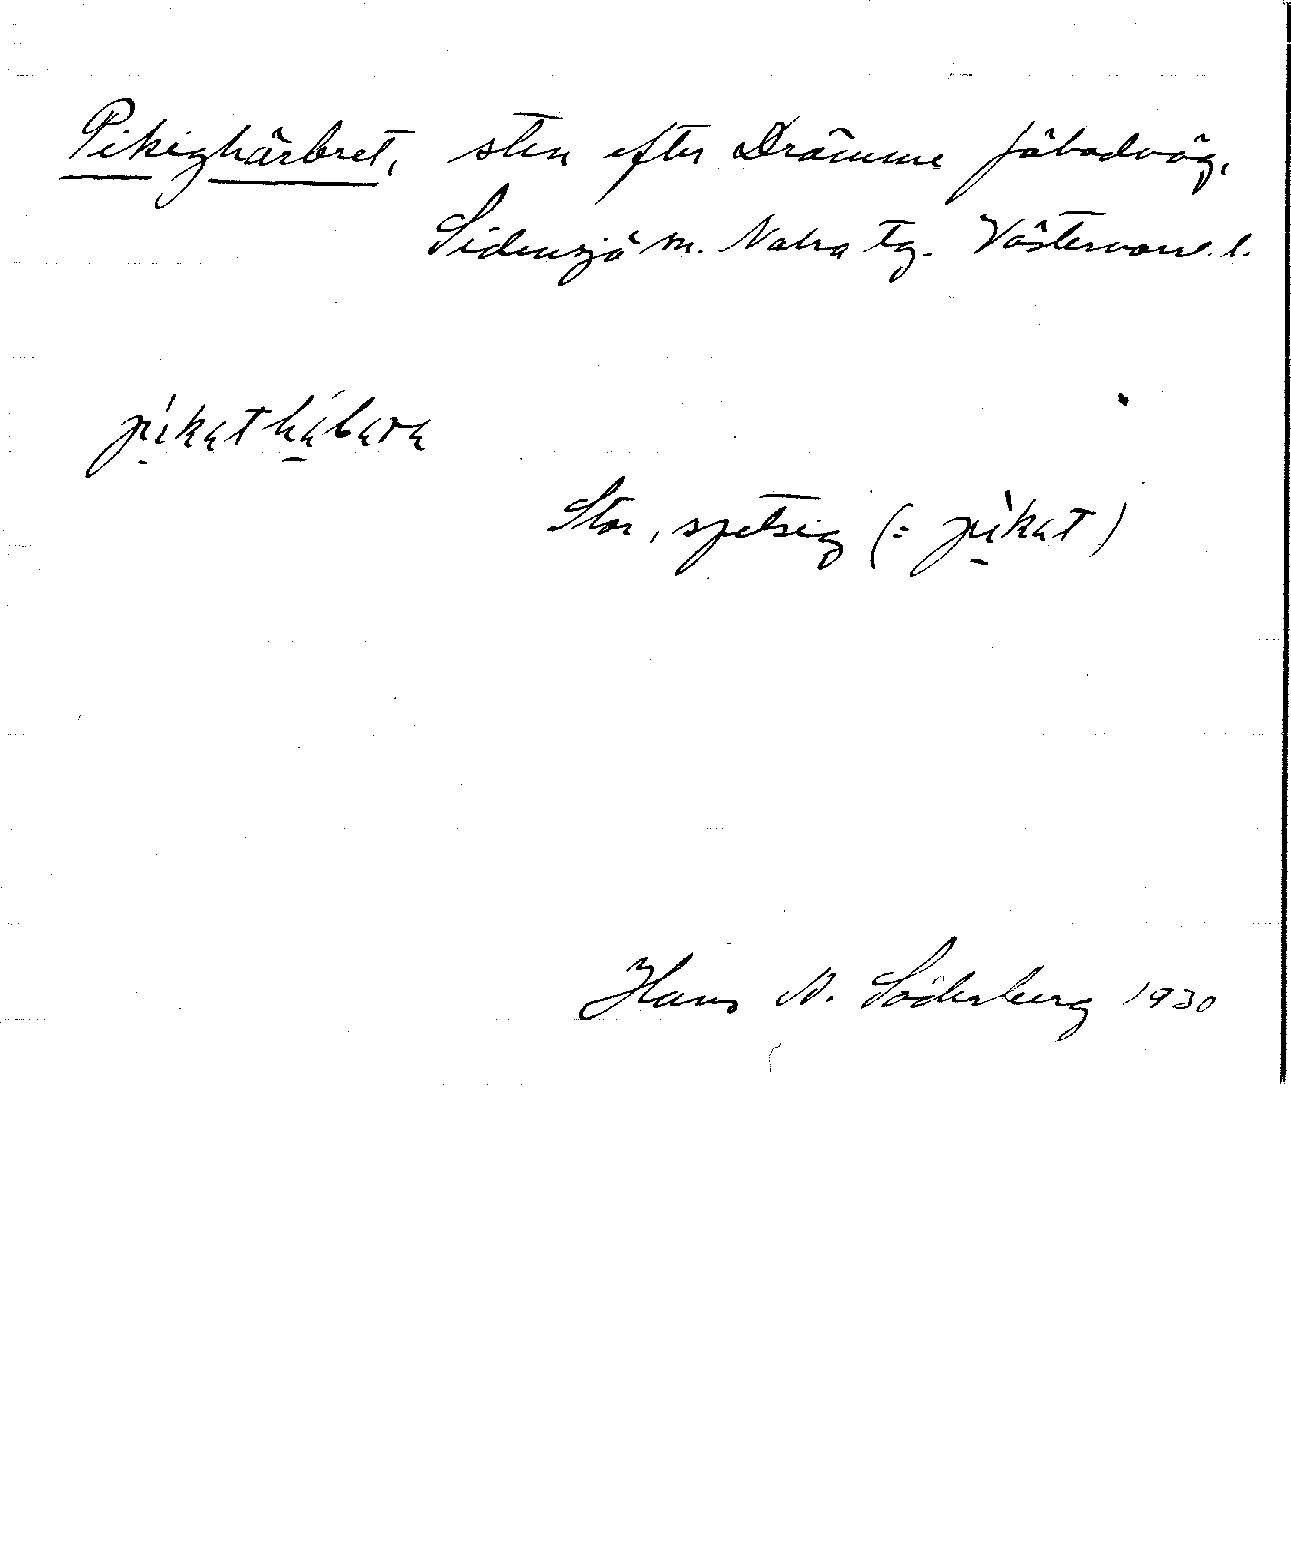 Pikighärbret, sten efter Drömme fäbodväg,
Sidensjö sn. Nätra tg. Västernorrl. l.
pikathäbara
Stor, spetsig (= pikat)
Hans N. Söderberg 1930